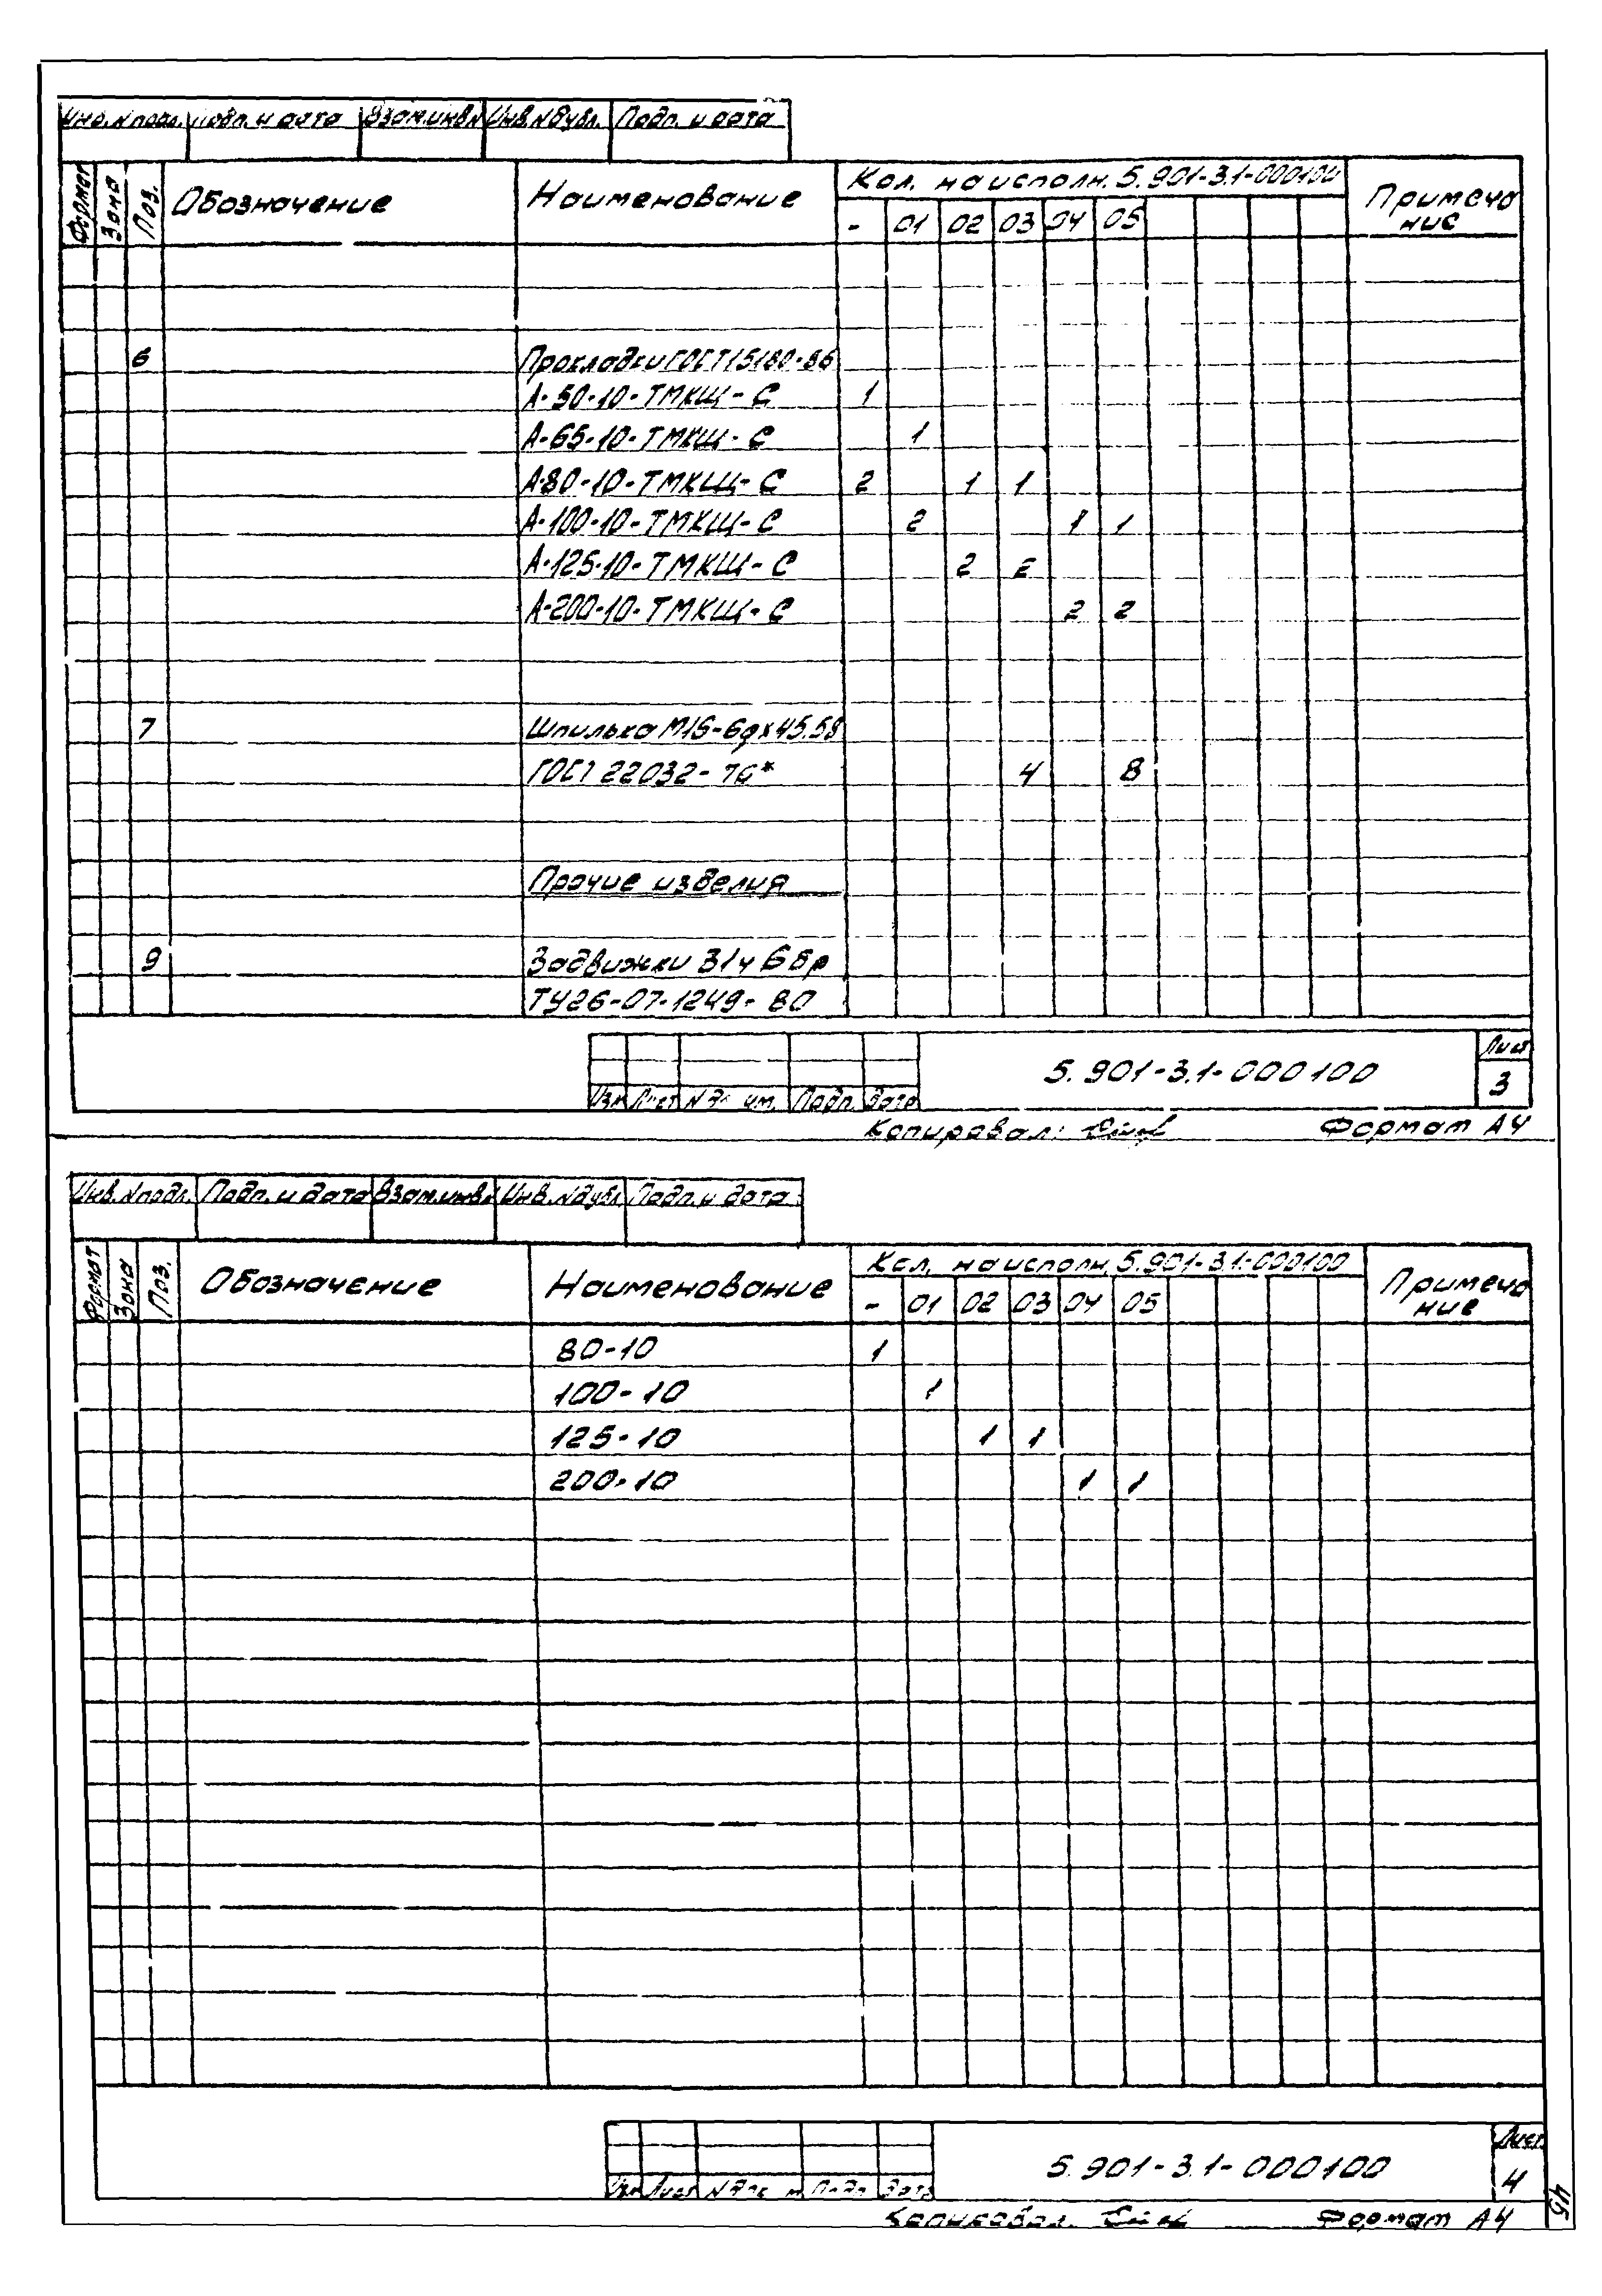 Инв. N подл. Подп. и дата Взам. инв. N Инв. N дубл. Подп. и дата
Формат Зона Поз. Обозначение Наименование Кол. на исполн. 5.901-3.1-000100 Примеча
ние
- 01 02 03 04 05
6 Прокладки ГОСТ 15180-86
А-50-10-ТМКЩ-С 1
А-65-10-ТМКЩ-С 1
А-80-10-ТМКЩ-С 2 1 1
А-100-10-ТМКЩ-С 2 1 1
А-125-10-ТМКЩ-С 2 2
А-200-10-ТМКЩ-С 2 2
7 Шпилька М16-6gx45.58
ГОСТ 22032-76* 4 8
Прочие изделия
9 Задвижки 31ч6бр
ТУ26-07-1249-80
Изм Лист N док им. Подп. Дата
5.901-3.1-000100
Лист
3
Копировал: Формат А4
Инв. N подл. Подп. и дата Взам. инв. N Инв. N дубл. Подп. и дата
Формат Зона Поз. Обозначение Наименование Кол. на исполн. 5.901-3.1-000100 Примеча
ние
- 01 02 03 04 05
80-10 1
100-10 1
125-10 1 1
200-10 1 1
Изм Лист N док м Подп Дата
5.901-3.1-000100
Лист
4
Копировал. Формат А4
45